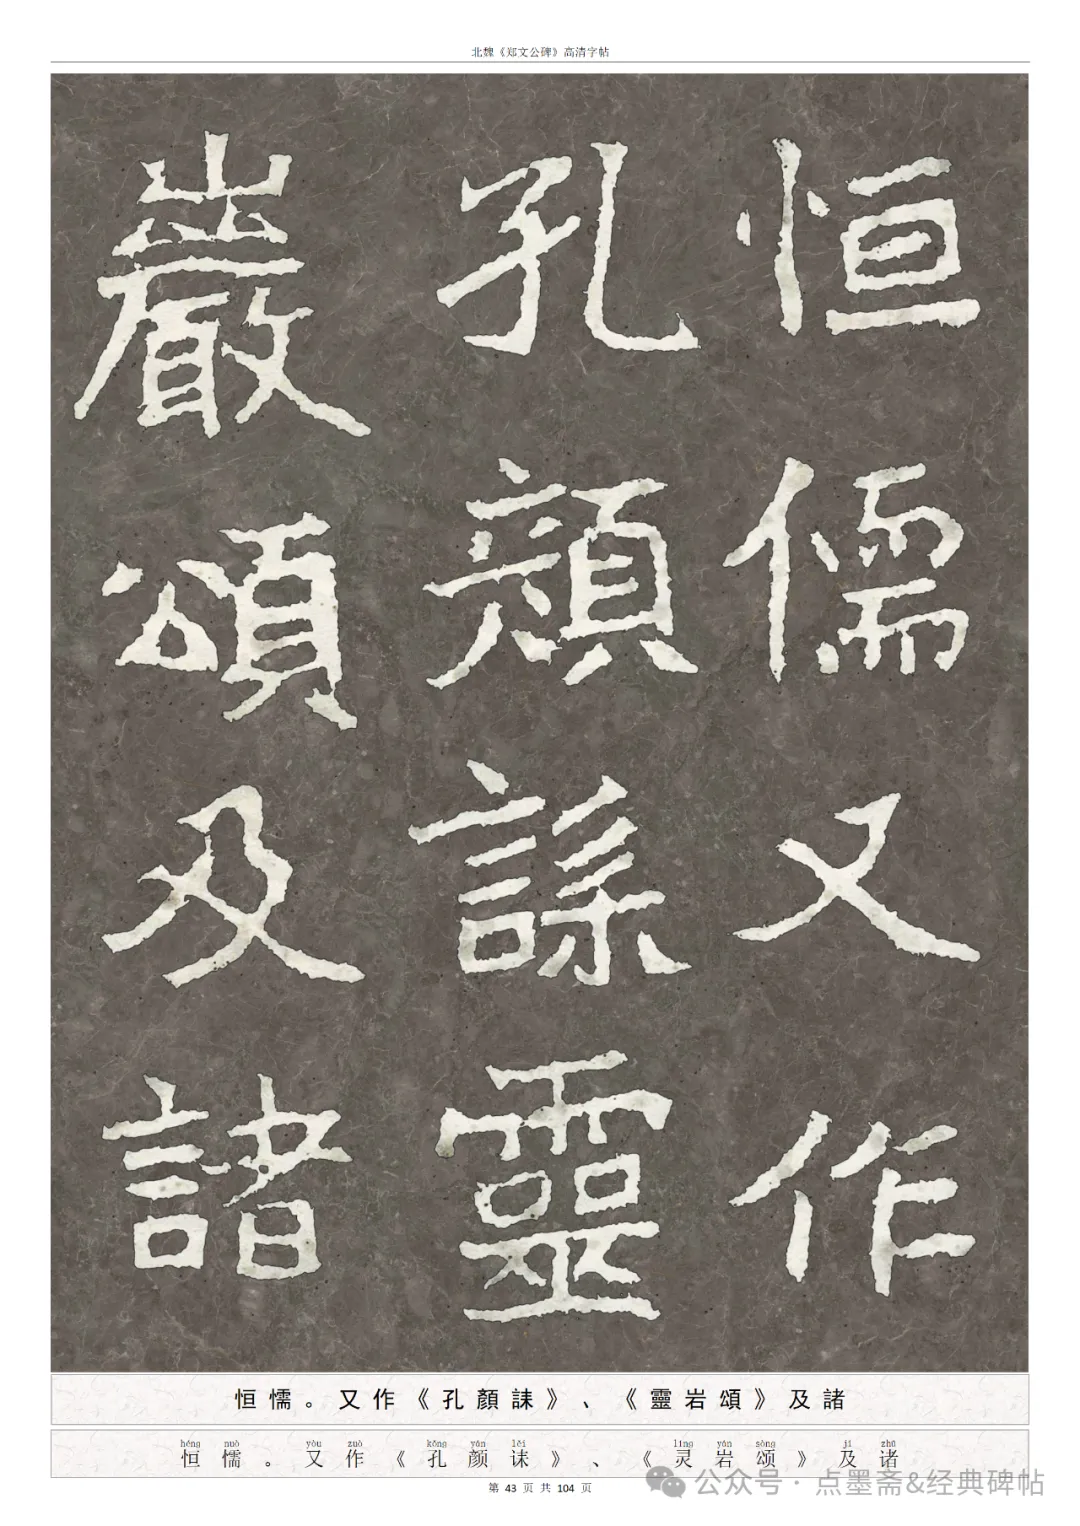 北魏《郑文公碑》高清字帖
恒儒又作
孔顏誄靈
巖頌及諸
恒懦。又作《孔顏誄》、《靈岩頌》及諸
héng nuò yòu zuò kǒng yán lěi líng yán sòng jí zhū
恒懦。又作《孔颜诔》、《灵岩颂》及诸
第 43 页 共 104 页
公众号 · 点墨斋&经典碑帖